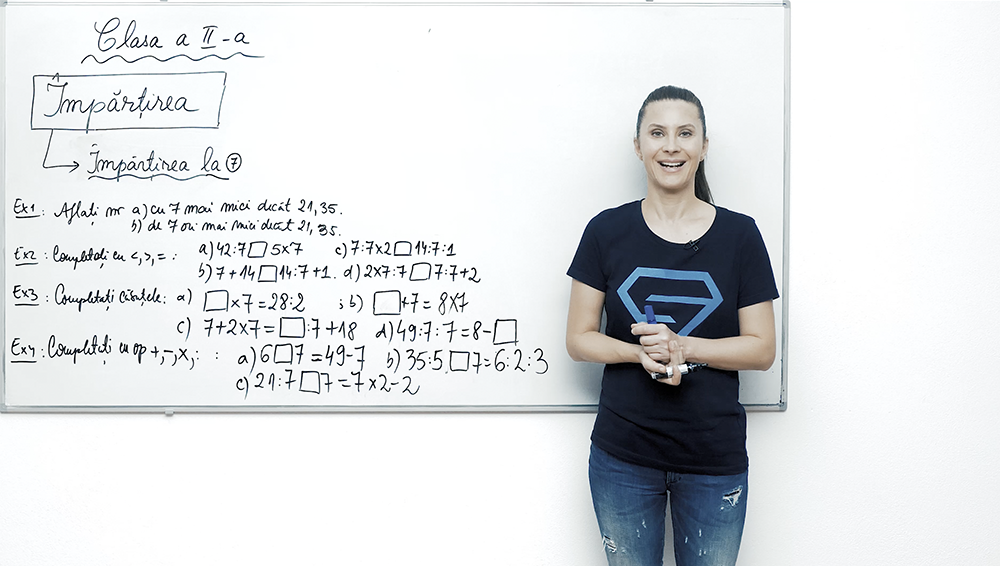 Clasa a II-a
Împărțirea
Împărțirea la 7
Ex1: Aflați nr a) cu 7 mai mici decât 21, 35.
b) de 7 ori mai mici decât 21, 35.
Ex2: Completați cu <, >, = : a) 42:7 □ 5x7 c) 7:7x2 □ 14:7:1
b) 7+14 □ 14:7+1. d) 2x7:7 □ 7:7+2
Ex3: Completați căsuțele: a) □ x7=28:2 ; b) □ +7= 8x7
c) 7+2x7= □ :7+18 d) 49:7:7=8- □
Ex4: Completați cu op +, -, x, : : a) 6 □ 7=49-7 b) 35:5 □ 7=6:2:3
c) 21:7 □ 7=7x2-2